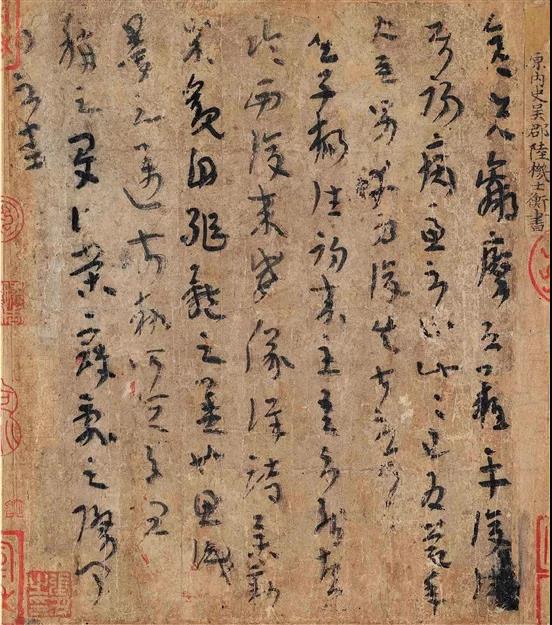 原內史吳郡陸機士衡書
彥先羸瘵恐難平復往屬
初病慮不止此此已為慶承
使唯男幸為復失前憂耳
吳子楊往初來主吾不能盡
臨西復來威儀詳跱舉動
成觀自軀體之美也思識
量之邁前勢所恆有宜
稱之夏伯榮寇亂之際聞
問不悉